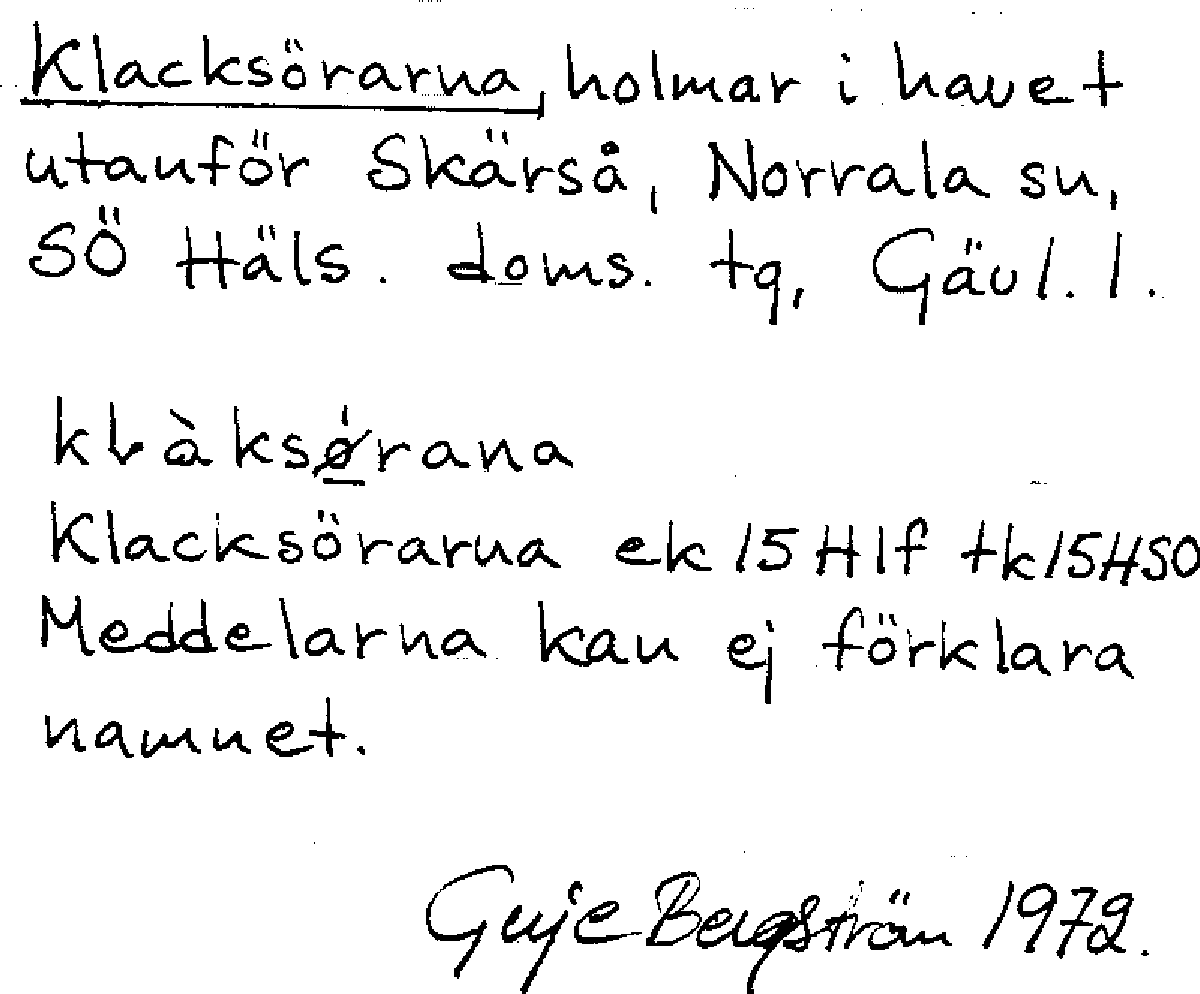 Klacksörarna, holmar i havet
utanför Skärså, Norrala sn,
SÖ Häls. doms. tg, Gävl. l.
klàksǿrana
Klacksörarna ek 15 H1f tk 15HSO
Meddelarna kan ej förklara
namnet.
Bergström 1972.